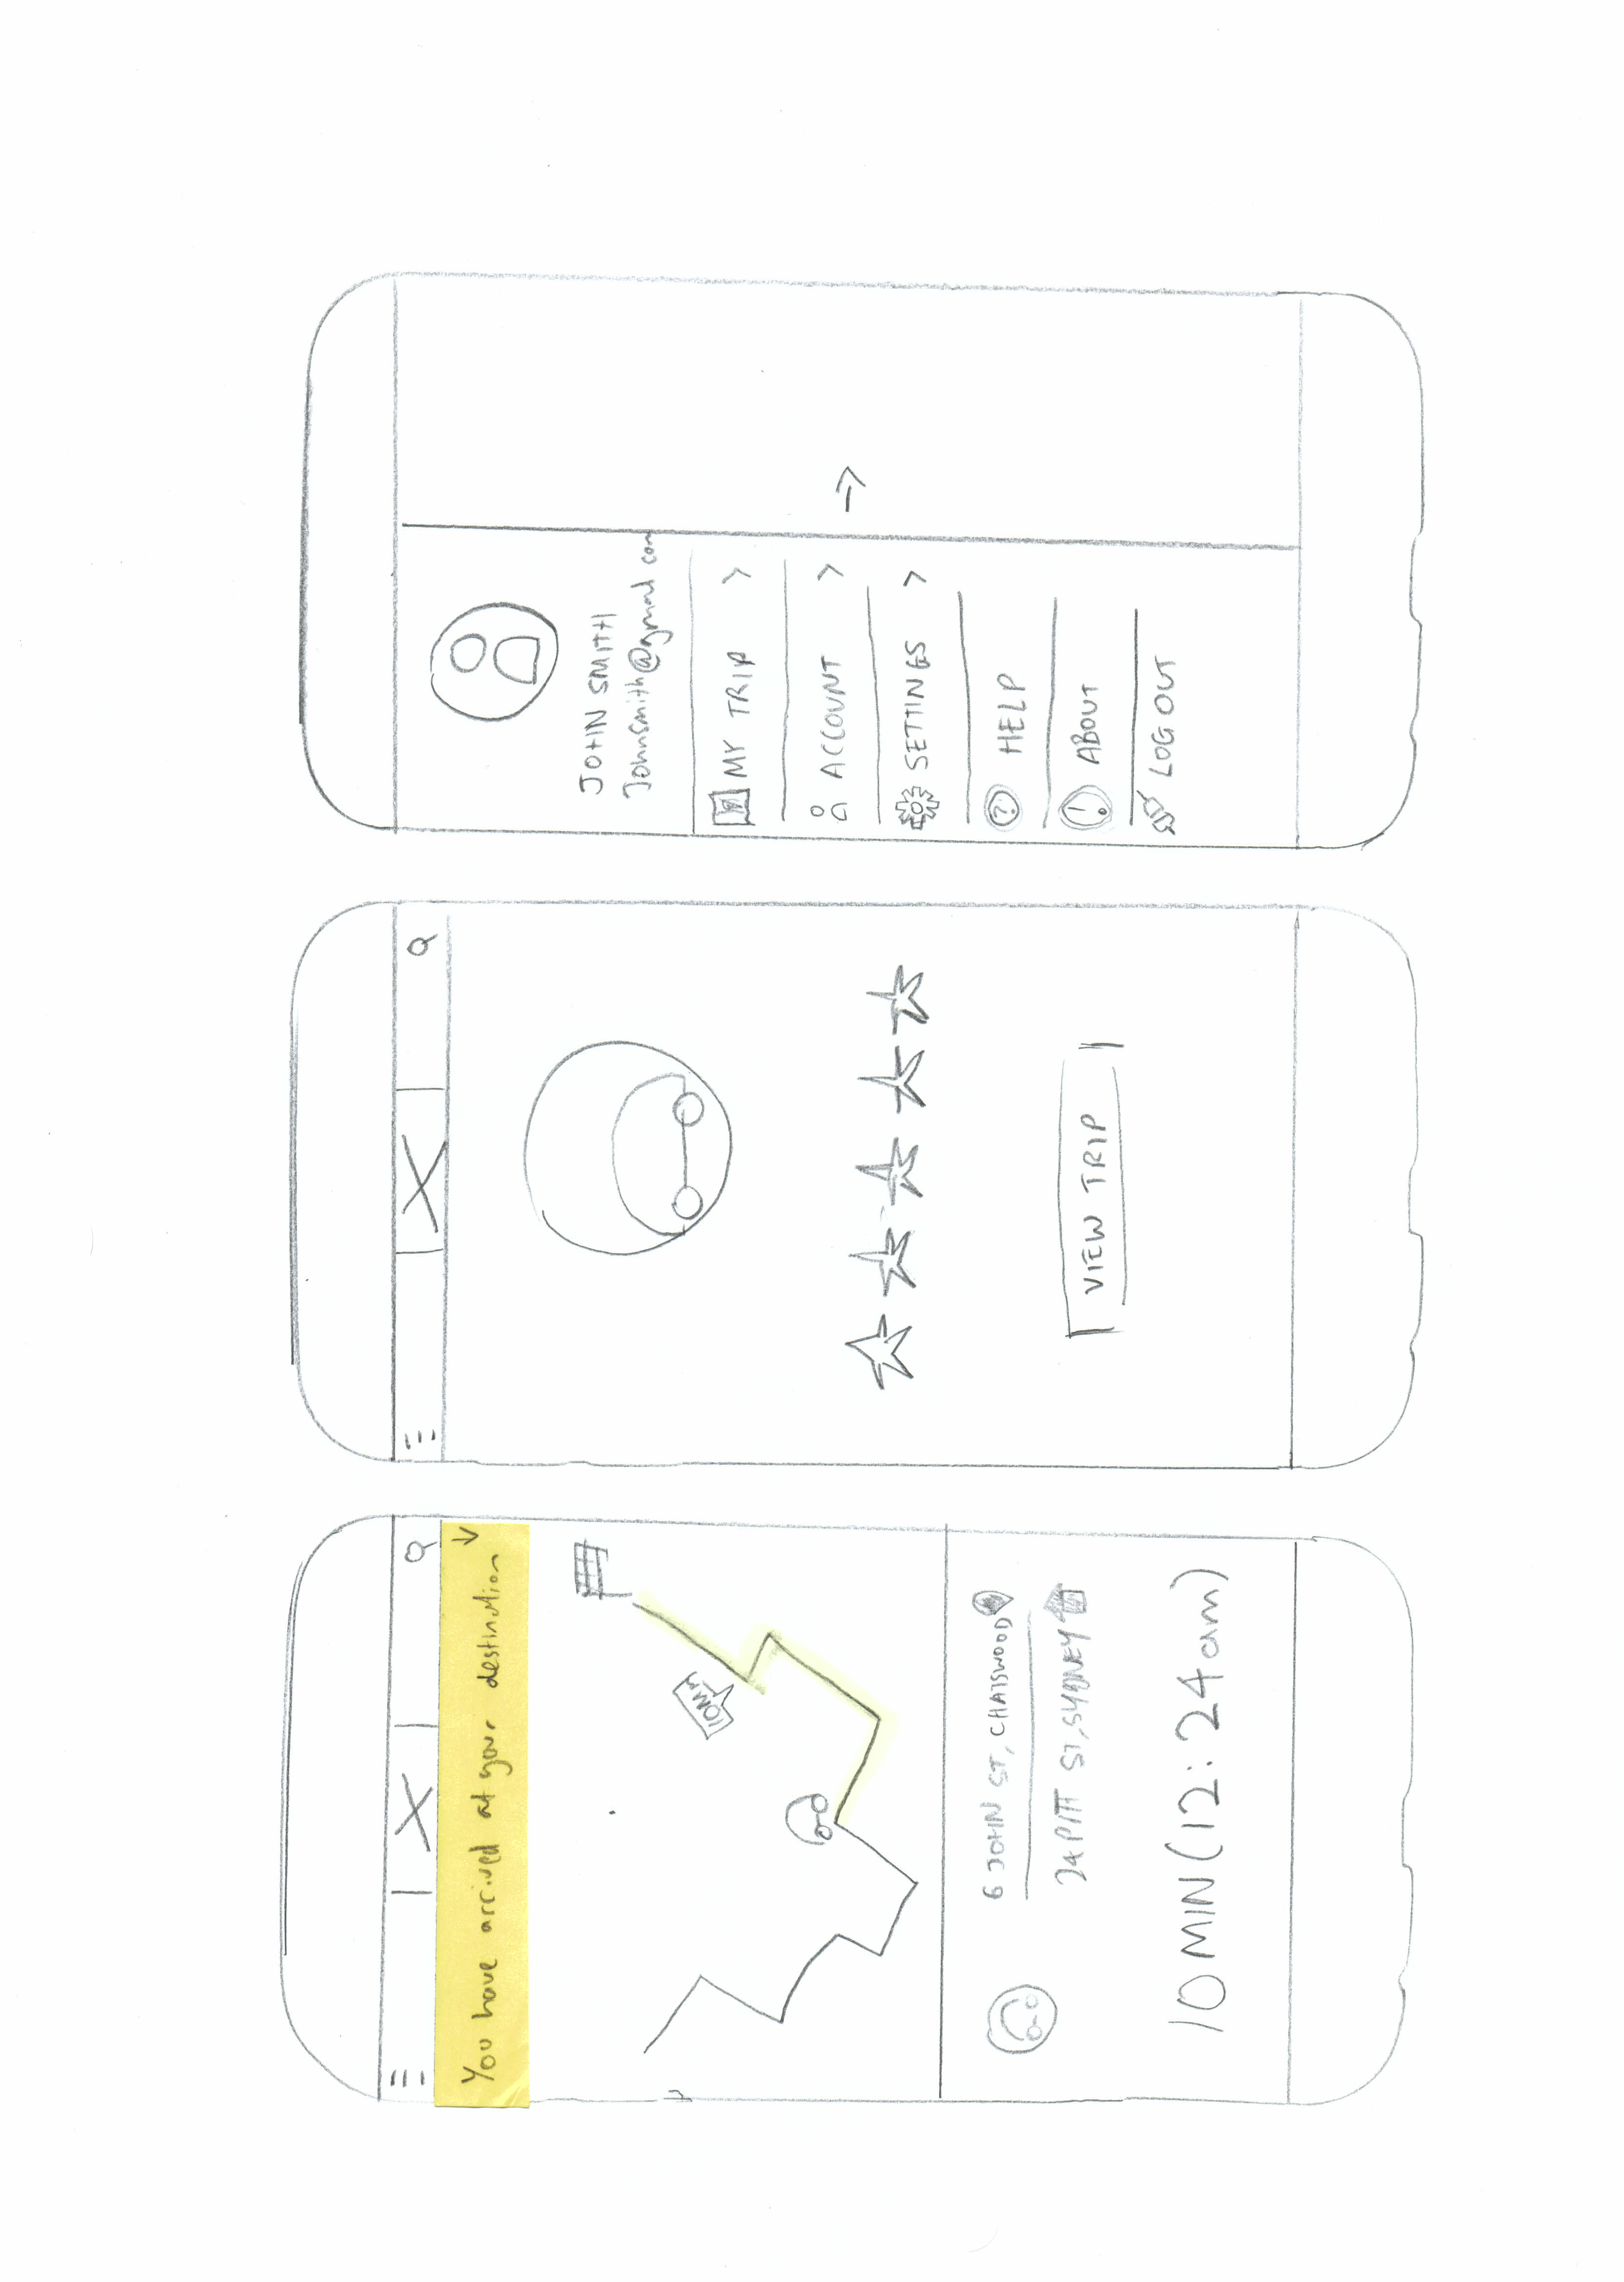 You have arrived at your destination
10MIN
6 JOHN ST, CHATSWOOD
24 PITT ST, SYDNEY
10 MIN (12:24am)
VIEW TRIP
JOHN SMITH
Johnsmith@gmail com
MY TRIP >
ACCOUNT >
SETTINGS >
? HELP
! ABOUT
LOG OUT